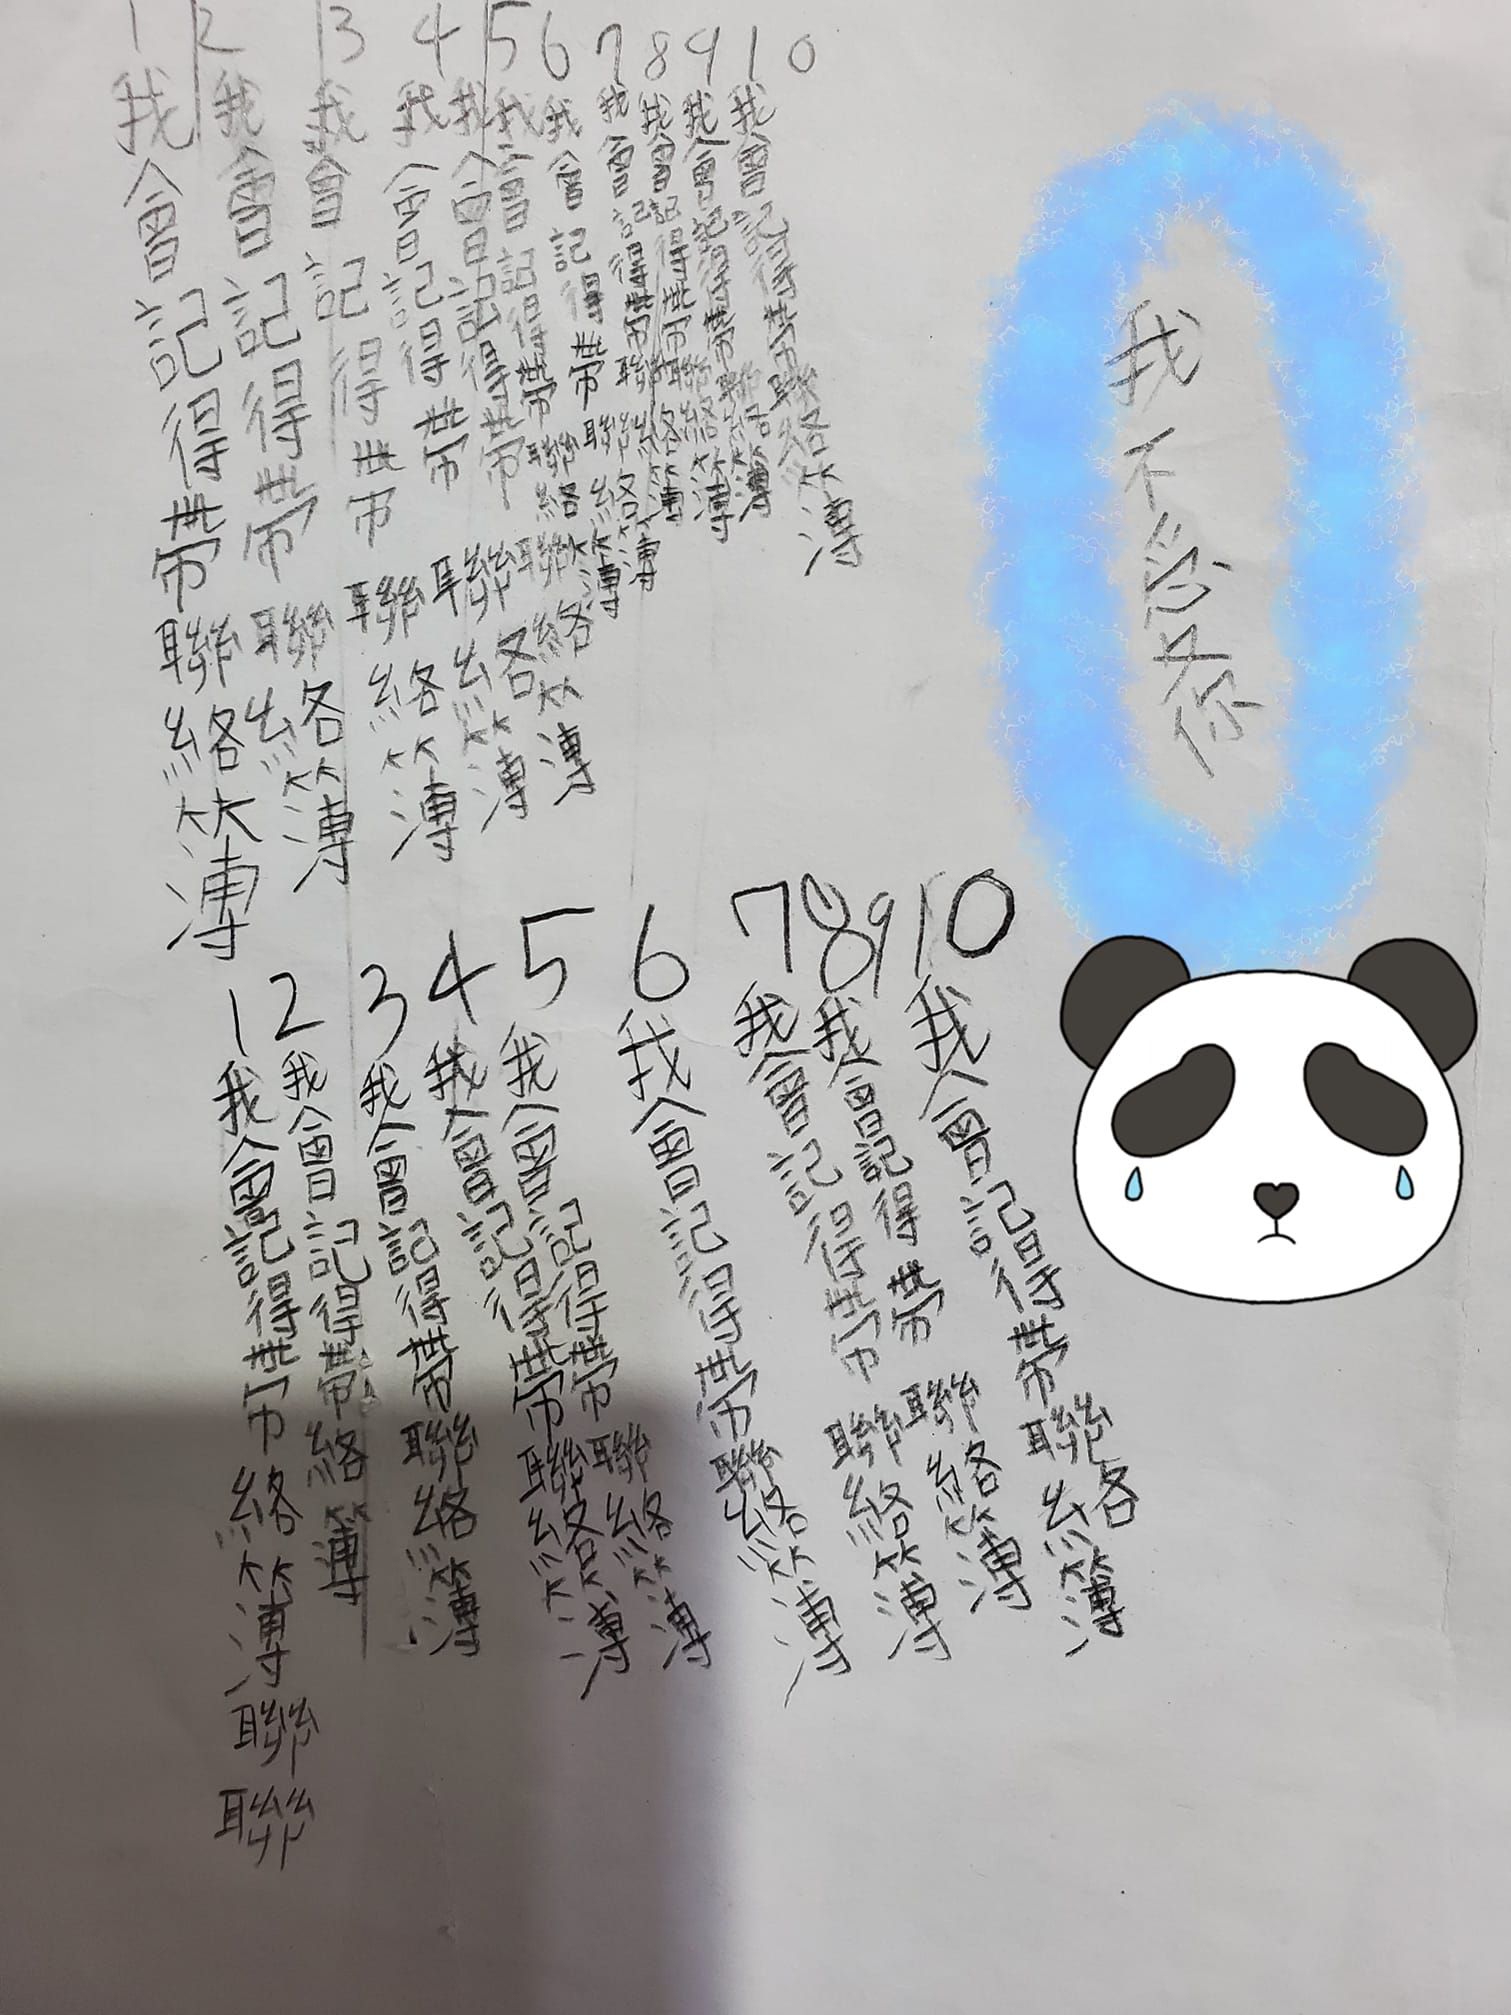 1 2 3 4 5 6 7 8 9 10
我會記得帶聯絡簿
我會記得帶聯絡簿
我會記得帶聯絡簿
我會記得帶聯絡簿
我會記得帶聯絡簿
我會記得帶聯絡簿
我會記得帶聯絡簿
我會記得帶聯絡簿
我會記得帶聯絡簿
我會記得帶聯絡簿
我會記得帶聯絡簿
我不愛你
1 2 3 4 5 6 7 8 9 10
我會記得帶絡簿聯聯
我會記得帶絡簿
我會記得帶聯絡簿
我會記得帶聯絡簿
我會記得帶聯絡簿
我會記得帶聯絡簿
我會記得帶聯絡簿
我會記得帶聯絡簿
我會記得帶聯絡簿